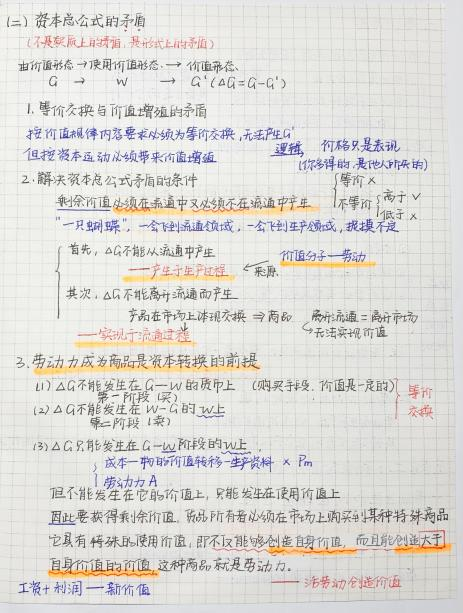 (二) 资本总公式的矛盾
(不是实质上的矛盾,是形式上的矛盾)
由价值形态 → 使用价值形态 → 价值形态
G → W → G' (ΔG=G-G')
1. 等价交换与价值增殖的矛盾
按价值规律内容要求必须为等价交换,无法产生G'
但按资本运动必须带来价值增殖
逻辑
价格只是表现
(你多得的,是他人所失的)
2. 解决资本总公式矛盾的条件
等价 ×
不等价
高于 ∨
低于 ×
剩余价值必须在流通中又必须不在流通中产生
"一只蝴蝶",一会飞到流通领域,一会飞到生产领域,捉摸不定
首先,ΔG不能从流通中产生
——产生于生产过程
← 来源
价值分子—劳动
其次,ΔG不能离开流通而产生
产品在市场上体现交换 ⇒ 商品
离开流通=离开市场
↳ 无法实现价值
——实现于流通过程
3. 劳动力成为商品是资本转换的前提
(1) ΔG不能发生在 G—W 的货币上 (购买手段,价值是一定的)
第一阶段 (买)
(2) ΔG不能发生在 W-G 的 W上
第二阶段 (卖)
等价
交换
(3) ΔG只能发生在 G—W 阶段的W上,
成本—物的价值转移—生产资料 × Pm
劳动力 A
但不能发生在它的价值上,只能发生在使用价值上
因此要获得剩余价值,货币所有者必须在市场上购买到某种特殊商品
它具有特殊的使用价值,即不仅能够创造自身价值,而且能创造大于
自身价值的价值,这种商品就是劳动力。
工资+利润—新价值
——活劳动创造价值